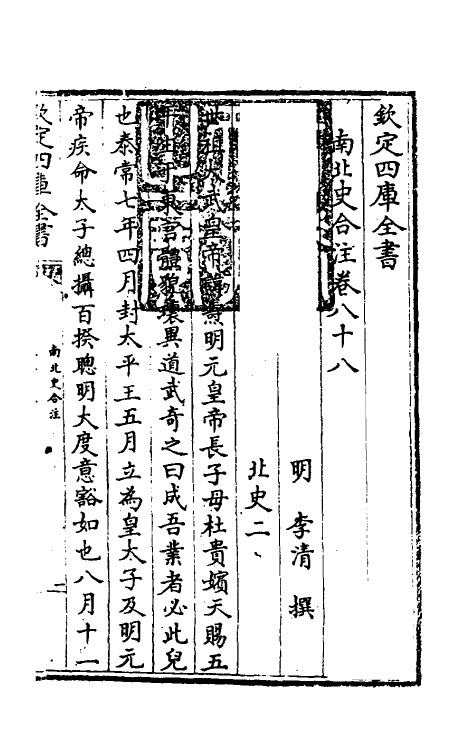 欽定四庫全書
南北史合注卷八十八
明 李清 撰
北史二
世祖太武皇帝諱燾明元皇帝長子母杜貴嬪天賜五
年生於東宫體貌瓌異道武奇之曰成吾業者必此兒
也泰常七年四月封太平王五月立為皇太子及明元
帝疾命太子總攝百揆聰明大度意豁如也八月十一
欽定四庫全書
南北史合注
一